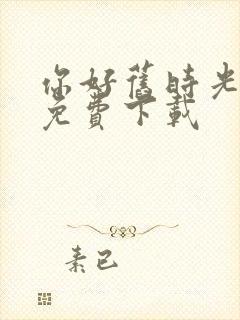 你好舊時光
免費下載
素已